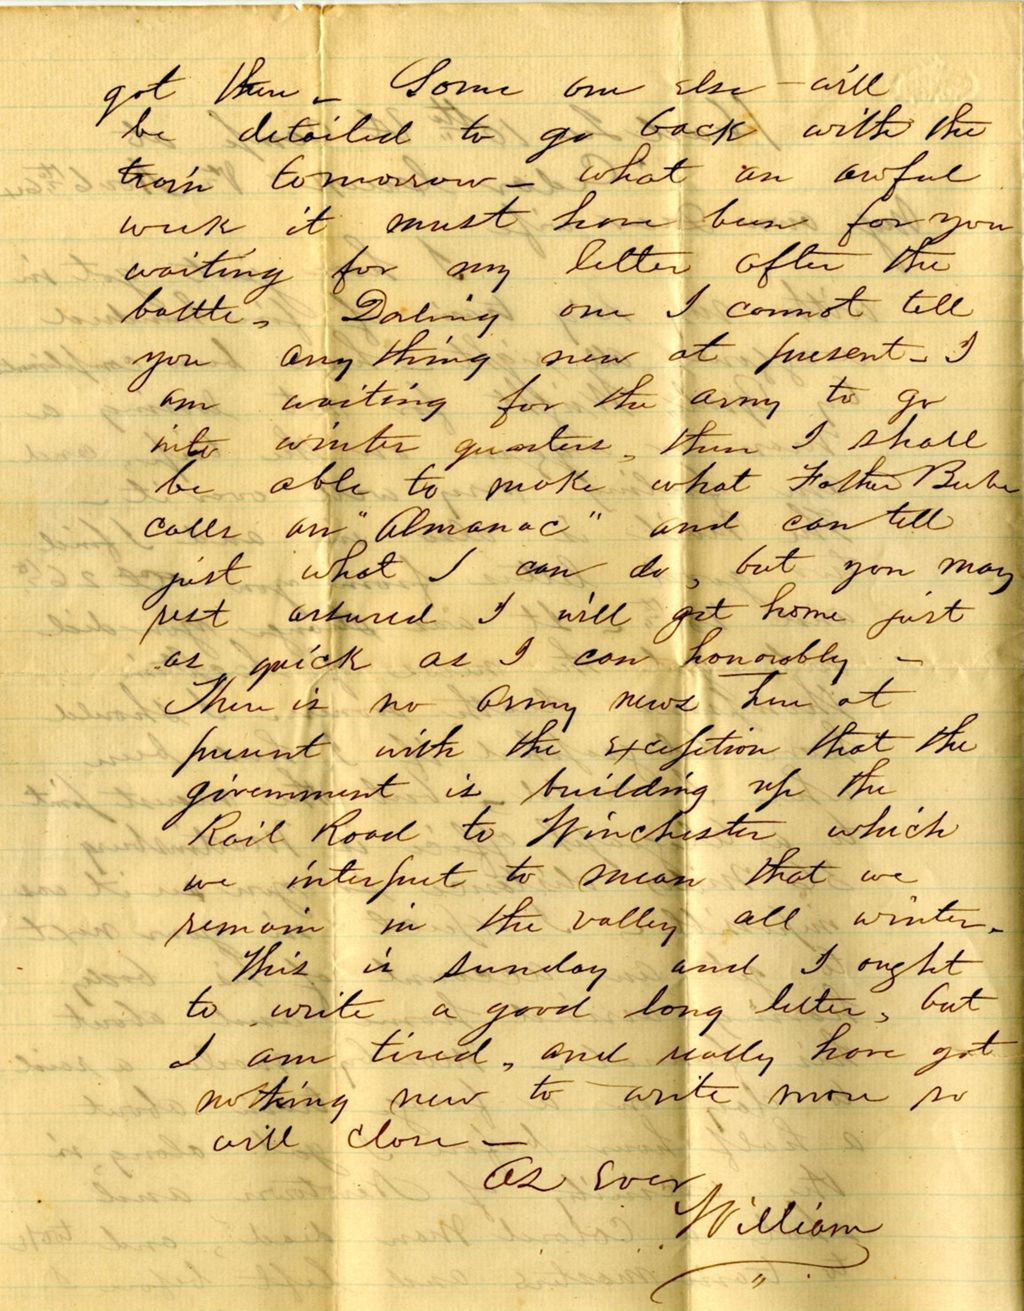 got there – Some one else will
be detailed to go back with the
train tomorrow – what an awful
week it must have been for you
waiting for my letter after the
battle. Darling one I cannot tell
you any thing new at present – I
am waiting for the army to go
into winter quarters, then I shall
be able to make what Father Beebe
calls an "Almanac" and can tell
just what I can do, but you may
rest assured I will get home just
as quick as I can honorably –
There is no army news here at
present with the exception that the
government is building up the
Rail Road to Winchester which
we interpret to mean that we
remain in the valley all winter.
This is sunday and I ought
to write a good long letter, but
I am tired, and really have got
nothing new to write more so
will close –
As Ever
William